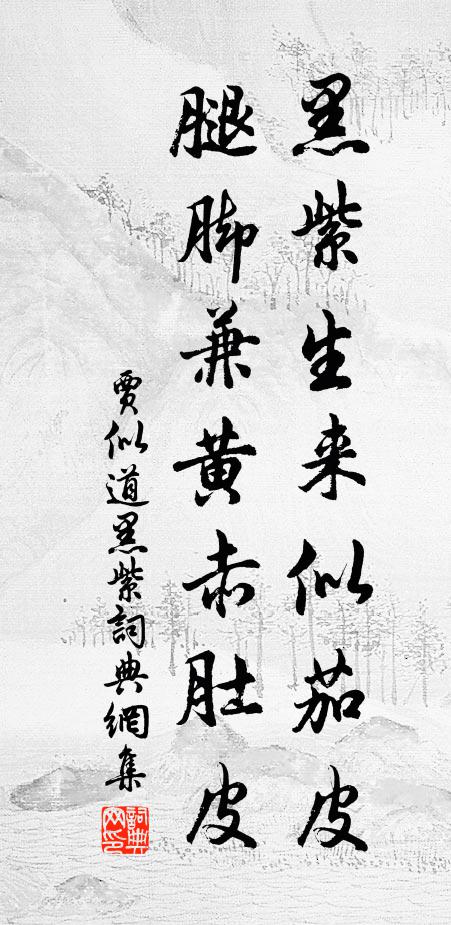 黑紫生来似茄皮
腿脚兼黄赤肚皮
贾似道黑紫詞典網集
詞典网印